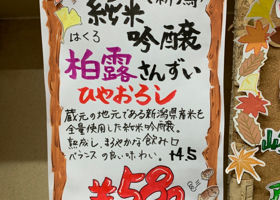 (新潟)
純米
吟醸
はくろ
柏露さんずい
ひやおろし
蔵元の地元である新潟県産米を
全量使用した純米吟醸。
熟成し、まろやかな飲み口
バランスの良い味わい。 +4.5
¥580